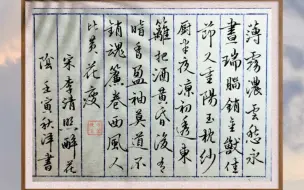 薄霧濃雲愁永
晝瑞腦銷金獸佳
節又重陽玉枕紗
厨半夜凉初透東
籬把酒黃昏後有
暗香盈袖莫道不
銷魂簾卷西風人
比黃花瘦
宋李清照醉花
陰壬寅秋洋書